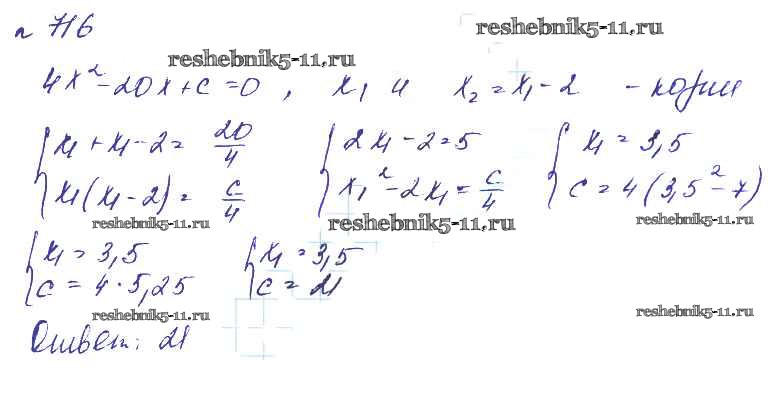 № 716
reshebnik5-11.ru
reshebnik5-11.ru
4x² - 20x + c = 0, x₁ и x₂ = x₁ - 2 - корни
{ x₁ + x₁ - 2 = 20/4 { 2x₁ - 2 = 5 { x₁ = 3,5
{ x₁(x₁ - 2) = c/4 { x₁² - 2x₁ = c/4 { c = 4(3,5² - 7)
reshebnik5-11.ru reshebnik5-11.ru reshebnik5-11.ru
{ x₁ = 3,5 { x₁ = 3,5
{ c = 4 · 5,25 { c = 21
reshebnik5-11.ru reshebnik5-11.ru
Ответ: 21